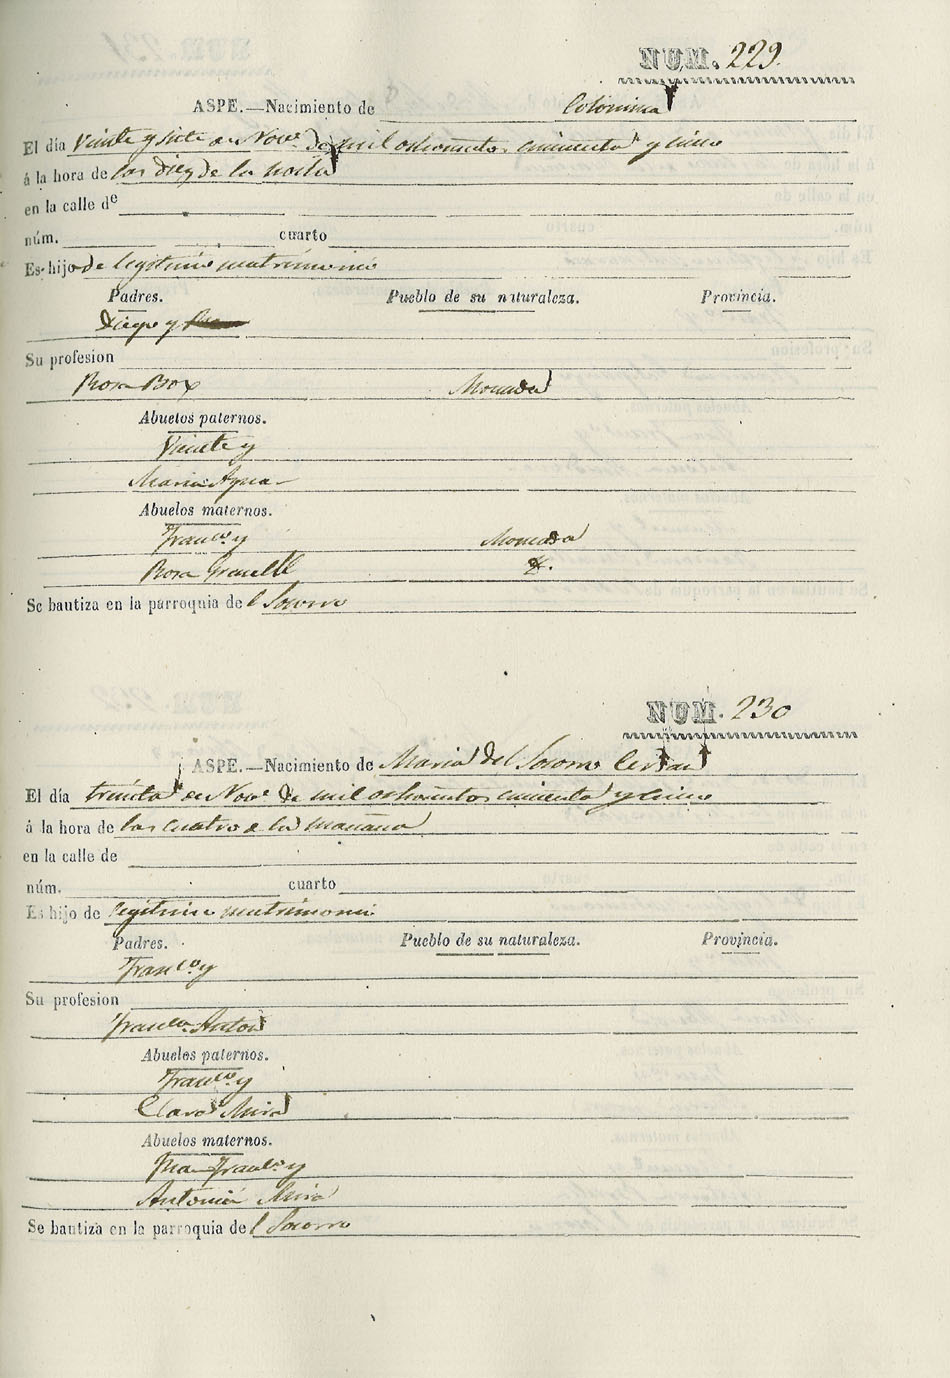 NUM. 229.
ASPE.—Nacimiento de Colomina
El día Veinte y siete de Nov.e de mil ochocientos cincuenta y cinco
á la hora de las diez de la noche
en la calle de
núm. cuarto
Es hijo de legitimo matrimonio
Padres. Pueblo de su naturaleza. Provincia.
Diego y
Su profesion
Rosa Box Monovar
Abuelos paternos.
Vicente y
Maria
Abuelos maternos.
Fran.co y
Rosa
Se bautiza en la parroquia del Socorro
NUM. 230
ASPE.—Nacimiento de Maria del Socorro
El día treinta de Nov.e de mil ochocientos cincuenta y cinco
á la hora de las cuatro de la mañana
en la calle de
núm. cuarto
Es hijo de legitimo matrimonio
Padres. Pueblo de su naturaleza. Provincia.
Fran.co y
Su profesion
Fran.ca Anton
Abuelos paternos.
Fran.co y
Clara Mira
Abuelos maternos.
Fran.co y
Antonia Mira
Se bautiza en la parroquia del Socorro